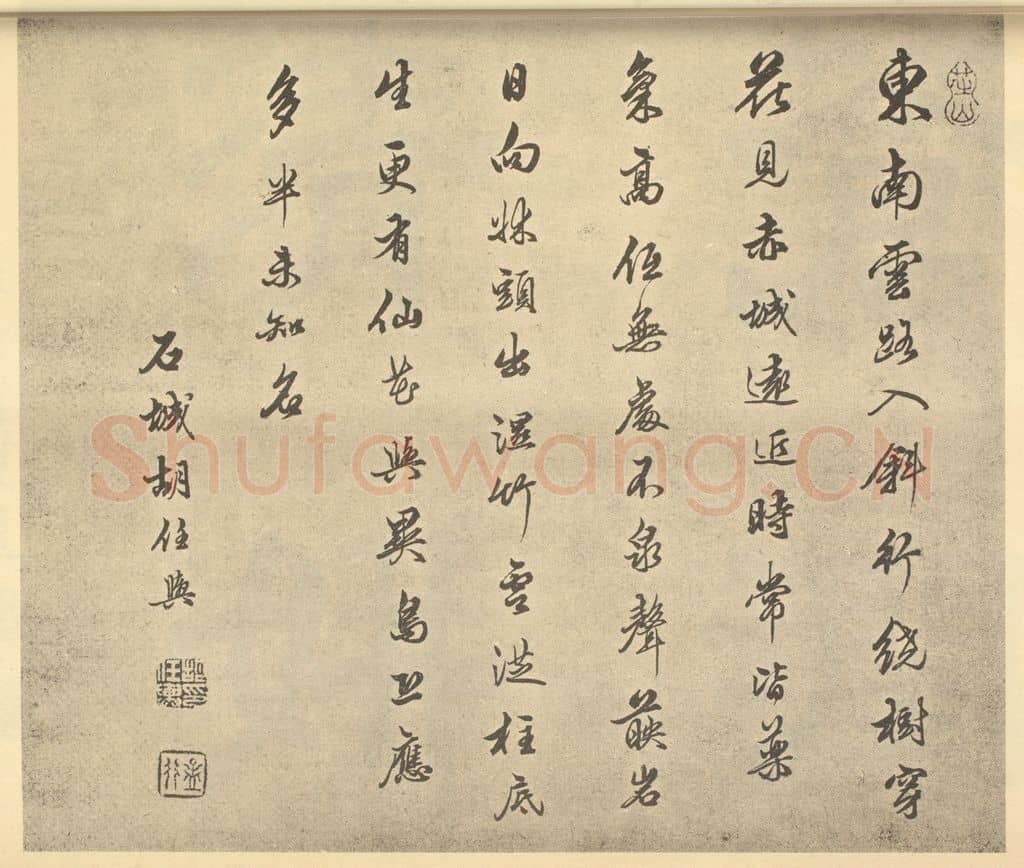 東南雲路入斜行繞樹穿
花見赤城遠近時常皆藥
氣高低無處不泉聲映岩
日向牀頭出濕竹雲從柱底
生更有仙花與異鳥恐應
多半未知名
石城胡任與
Shufawang.CN